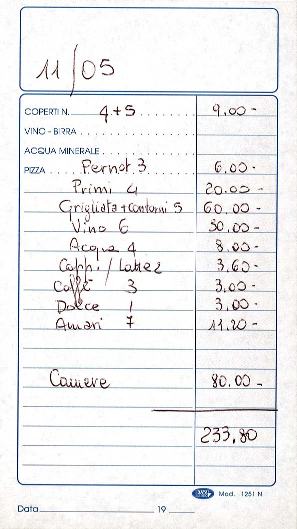 11/05
COPERTI N. 4+5 9.00-
VINO - BIRRA
ACQUA MINERALE
PIZZA Pernot 3 6.00-
Primi 4 20.00-
Grigliata + contorni 5 60.00-
Vino 6 30.00-
Acqua 4 8.00-
Capp. / Latte 2 3,60-
Caffè 3 3,00-
Dolce 1 3,00-
Amari 7 11,20-
Camere 80.00-
233,80
Mod. 1251 N
Data 19